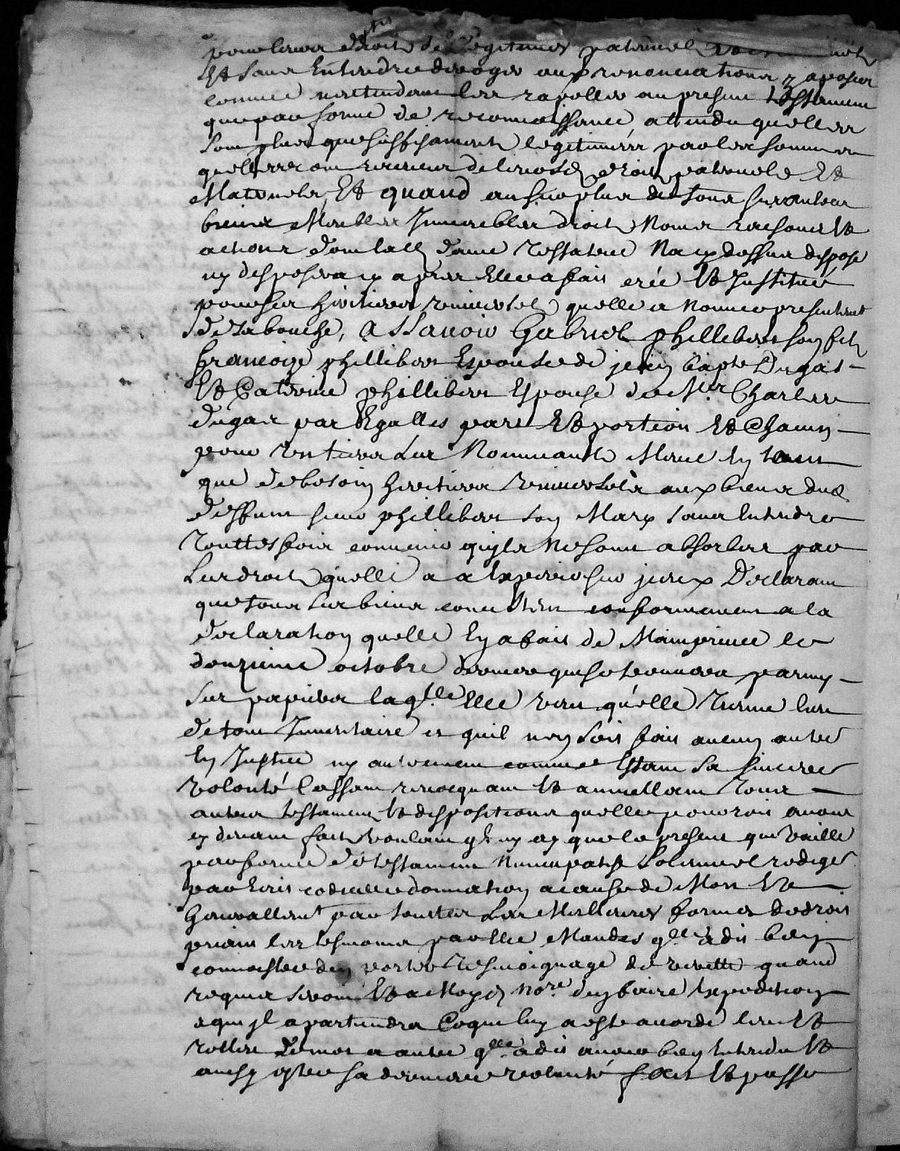 pour leurs droits de legitimes paternel
Et sans Entendre deroger aux renonciations y aposees
comme n'entendant les rapeller au present testament
que par forme de reconnoissance attendu quelles
sont plus que suffisament legitimées par les sommes
quelles ont receues de leurs droits paternels Et
Maternels, Et quand au surplus de tous ses autres
biens Meubles Immeubles droits Noms raisons Et
actions dont lad. dame testatrice Na cy dessus dispose
ny disposera cy apres Elle a fait crée Et Institué
pour ses heritiers universels quelle a Nommé presentement
de sa bouche, a Scavoir Gabriel phillibert son fils
francoise phillibert Espouse de jean bapte Dugas
Et Catherine phillibert Espouse de Mr. Charles
dugas par Egalles parts Et portion Et Chacun
pour un tiers Les Nommant Mème en tant
que de besoin heritiers universels aux biens dud.
deffunt sieur phillibert son Mary sans Entendre
touttesfois comme qu'ils Ne sont absorbés par
Les droits quelle a a Exercer sur jceux Declarant
que tous Les biens consistent conformement a la
declaration quelle En a fait de Main privée le
douzieme octobre dernier qui se trouvera parmy
Ses papiers laqlle Elle veut quelle tienne lieu
de tout Inventaire et quil n'en soit fait aucun autre
En Justice ny autrement comme Estant sa sincere
volonté Cassant revoquant Et annullant tous
autres testament Et dispositions quelle pourroit avoir
cy devant fait voulant ql ny ay que le present qui vaille
par forme de testament Nuncupatif solemnel redigé
par Ecrit codicille donnation a cause de Mort Et
Generallement par touttes Les Meilleures formes de droit
priant les tesmoins par Elle Mandés qlle a dit bien
connoistre den porter tesmoignage de verité quand
requis seront Et a Moy d. nore. den faire Expedition
a qui jl apartiendra Ce que luy a esté accordé leu Et
relleu de mot a autre qlle a dit avoir bien Entendu Et
ainsy estre sa derniere volonté fait Et passé